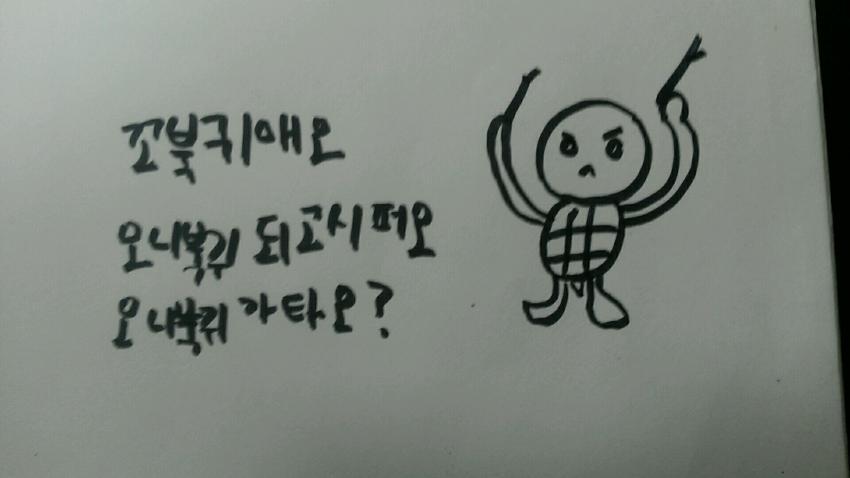 꼬북귀애오
오니북퀴 되고시퍼오
오니북퀴 가타오?